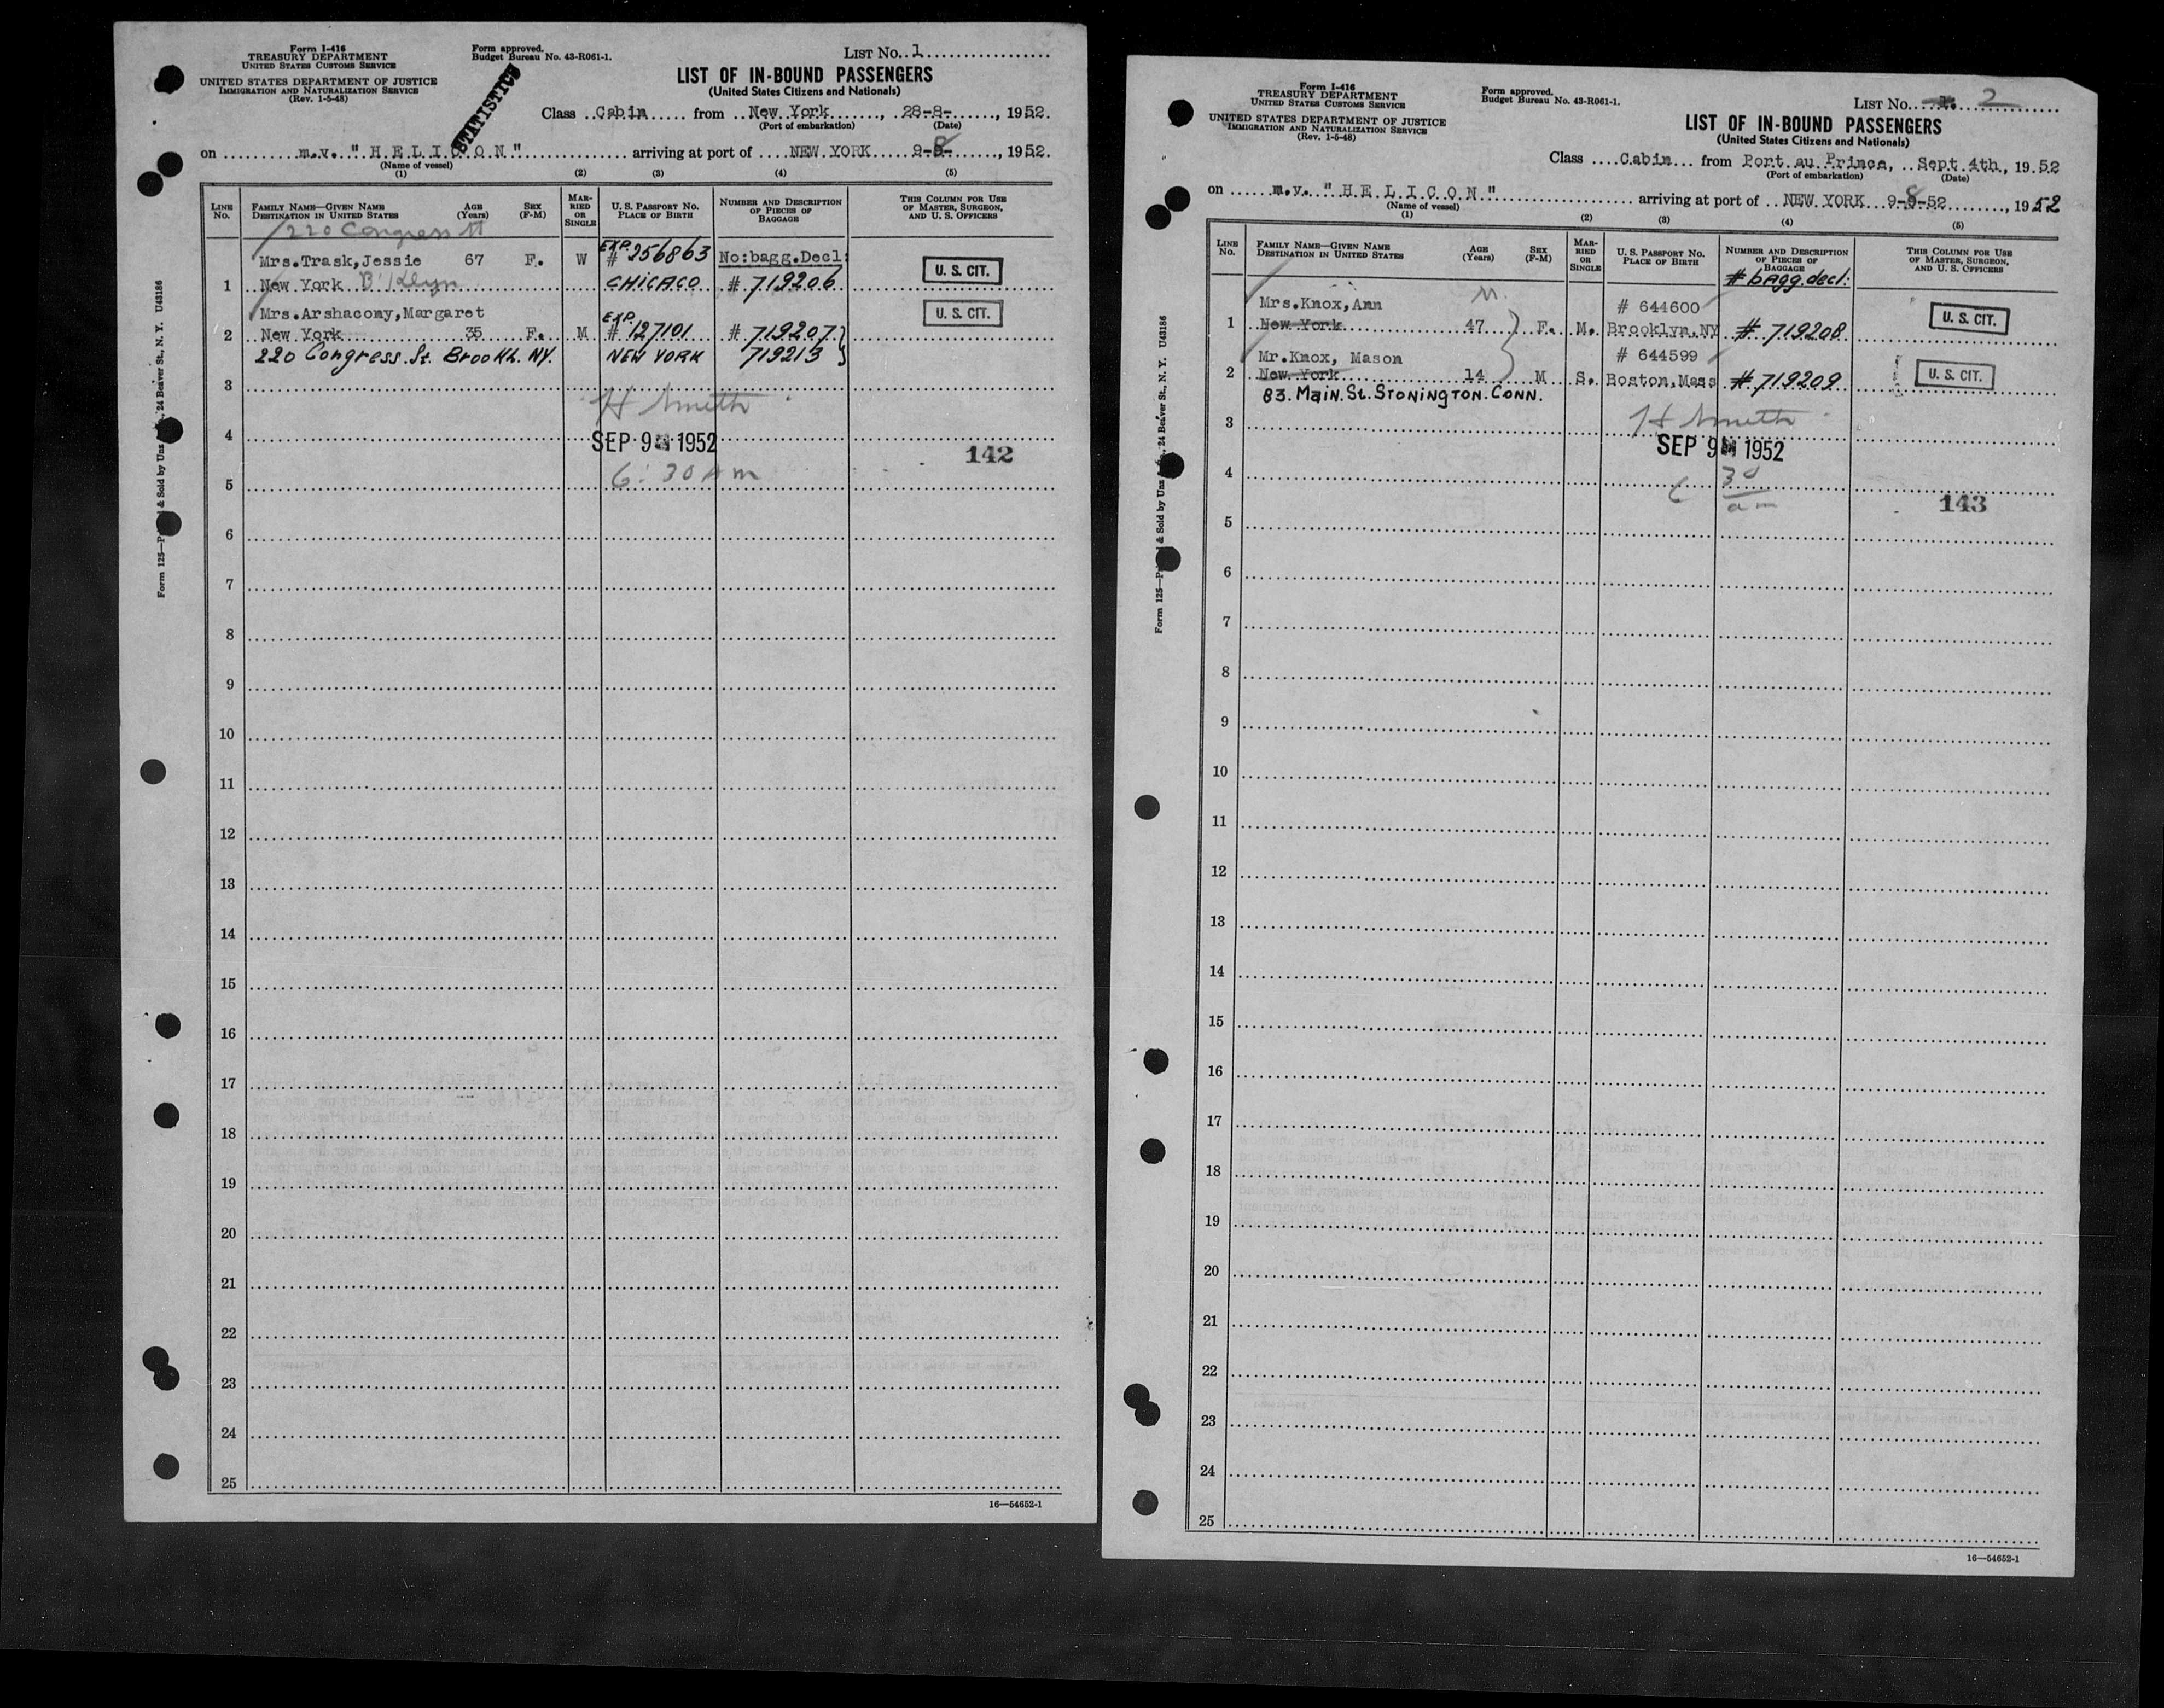 Form I-416
TREASURY DEPARTMENT
UNITED STATES CUSTOMS SERVICE
UNITED STATES DEPARTMENT OF JUSTICE
IMMIGRATION AND NATURALIZATION SERVICE
(Rev. 1-5-48)
Form approved.
Budget Bureau No. 43-R061-1.
STATISTICS
LIST No. 1
LIST OF IN-BOUND PASSENGERS
(United States Citizens and Nationals)
Class Cabin from New York, 28-8-, 1952.
(Port of embarkation) (Date)
on m.v. "HELICON" arriving at port of NEW YORK 9-8-, 1952.
(Name of vessel)
(1) (2) (3) (4) (5)
LINE No. FAMILY NAME—GIVEN NAME DESTINATION IN UNITED STATES AGE (Years) SEX (F-M) MARRIED OR SINGLE U. S. PASSPORT No. PLACE OF BIRTH NUMBER AND DESCRIPTION OF PIECES OF BAGGAGE THIS COLUMN FOR USE OF MASTER, SURGEON, AND U. S. OFFICERS
220 Congress St
Mrs.Trask,Jessie 67 F. W EXP. # 256863 No:bagg.Decl: U. S. CIT.
1 New York B'klyn CHICAGO # 719206
Mrs.Arshacony,Margaret EXP. U. S. CIT.
2 New York 35 F. M # 127101 # 719207}
220 Congress.St. Brookl. NY. NEW YORK 719213
3
H Smith
4 SEP 9 1952 142
6:30 Am
5
6
7
8
9
10
11
12
13
14
15
16
17
18
19
20
21
22
23
24
25
16—54652-1
24 Beaver St., N. Y. U43186
Form 125—
& Sold by
Form I-416
TREASURY DEPARTMENT
UNITED STATES CUSTOMS SERVICE
UNITED STATES DEPARTMENT OF JUSTICE
IMMIGRATION AND NATURALIZATION SERVICE
(Rev. 1-5-48)
Form approved.
Budget Bureau No. 43-R061-1.
LIST No. 2
LIST OF IN-BOUND PASSENGERS
(United States Citizens and Nationals)
Class Cabin from Port au Prince, Sept 4th, 1952
(Port of embarkation) (Date)
on m.v. "HELICON" arriving at port of NEW YORK 9-8-52, 1952
(Name of vessel)
(1) (2) (3) (4) (5)
LINE No. FAMILY NAME—GIVEN NAME DESTINATION IN UNITED STATES AGE (Years) SEX (F-M) MARRIED OR SINGLE U. S. PASSPORT No. PLACE OF BIRTH NUMBER AND DESCRIPTION OF PIECES OF BAGGAGE THIS COLUMN FOR USE OF MASTER, SURGEON, AND U. S. OFFICERS
# bagg.decl:
Mrs.Knox,Ann M. # 644600 U. S. CIT.
1 New York 47 F. M. Brooklyn,NY # 719208
Mr.Knox, Mason # 644599
2 New York 14 M S. Boston,Mass # 719209 U. S. CIT.
83. Main.St. STONINGTON. CONN.
3 H Smith
SEP 9 1952
4 6 30 am
143
5
6
7
8
9
10
11
12
13
14
15
16
17
18
19
20
21
22
23
24
25
16—54652-1
24 Beaver St., N. Y. U43186
Form 125—
& Sold by